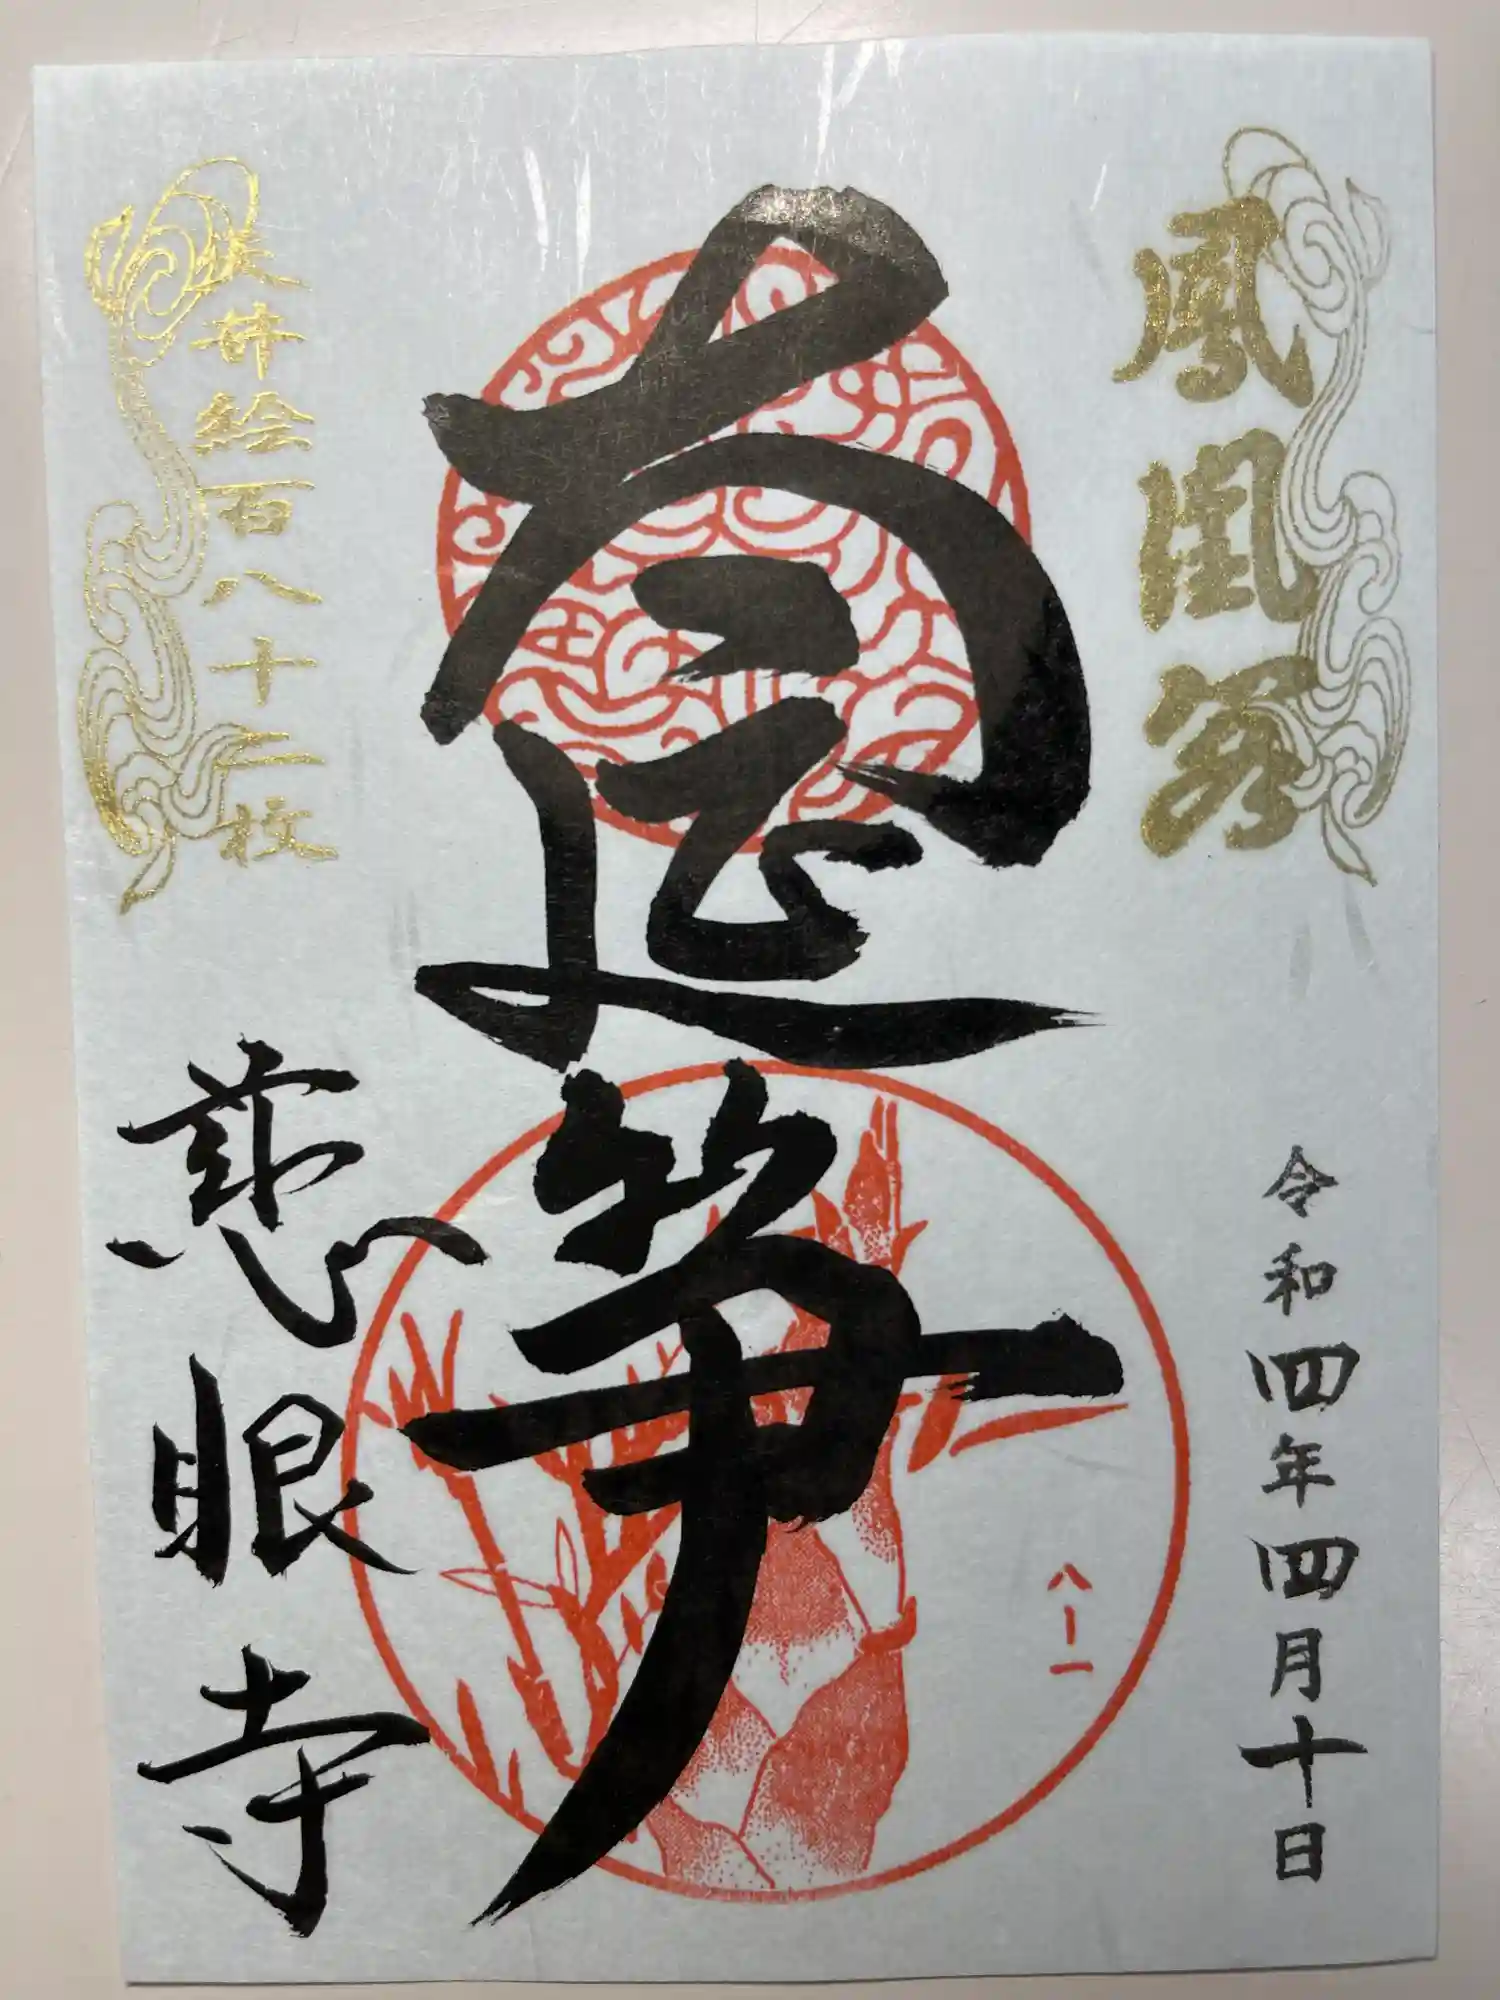 鳳凰
令和四年四月十日
笋
天井絵百八十二枚
慈眼寺